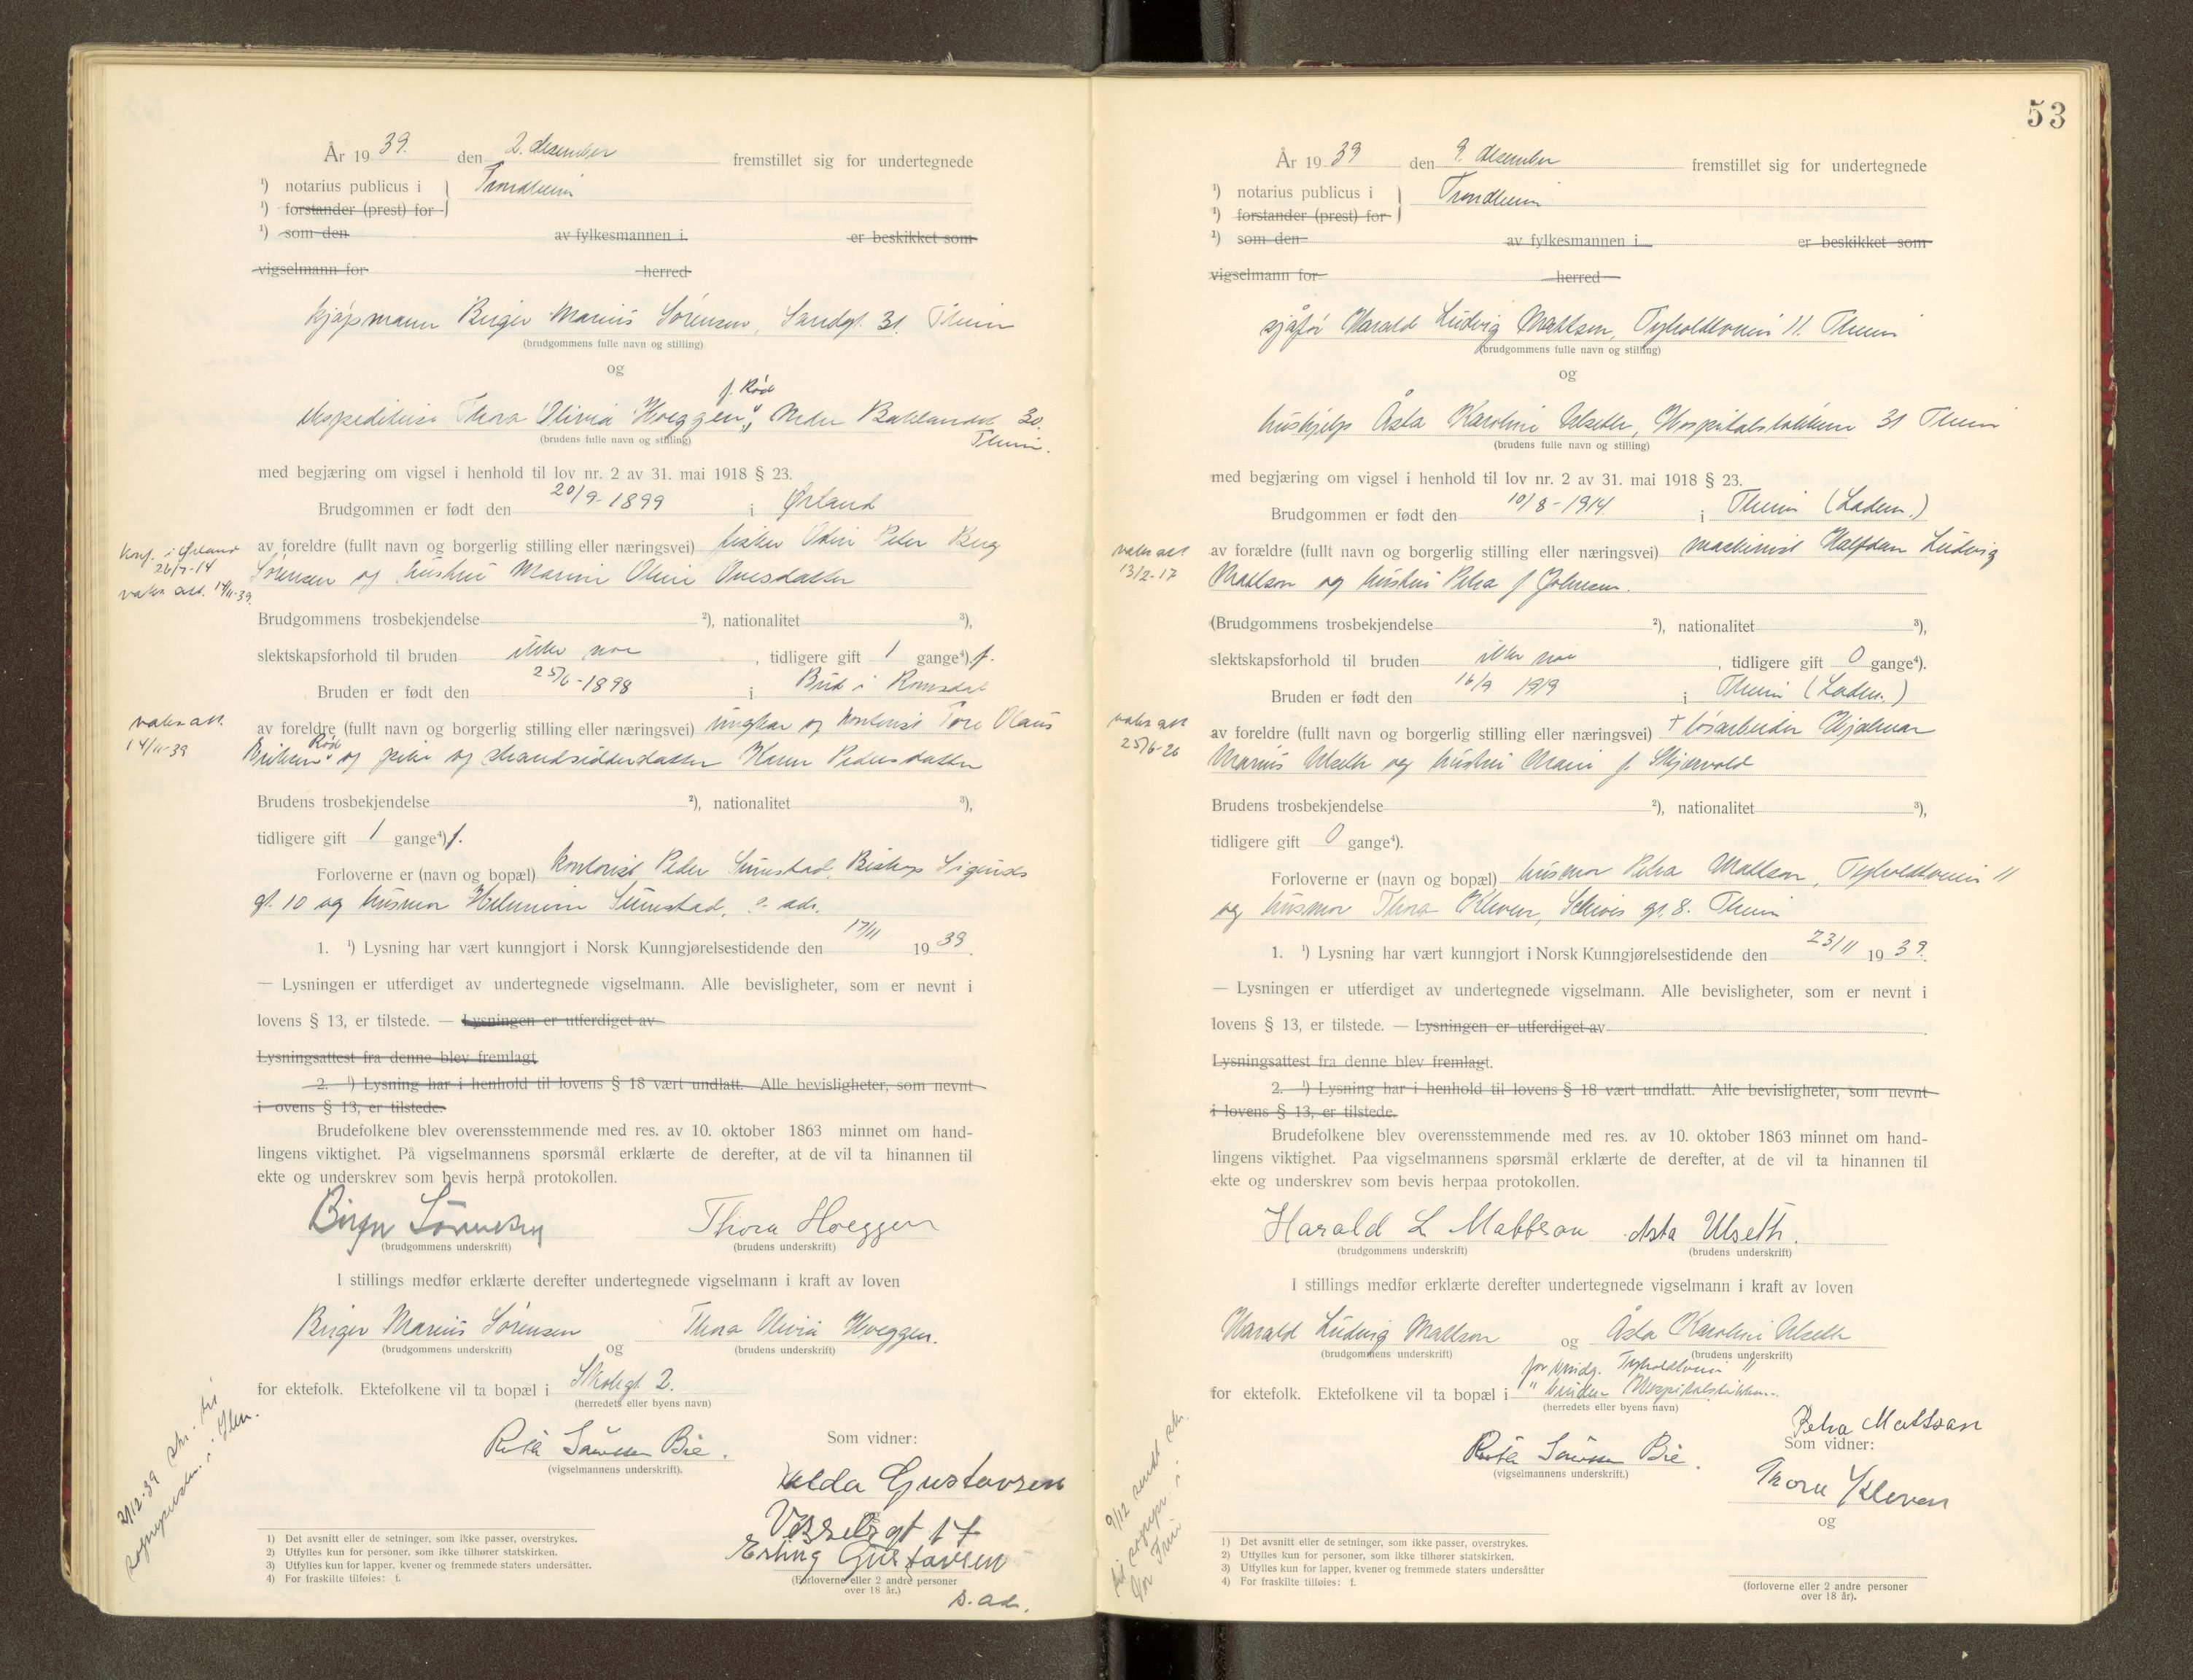 År 19 39. den 2. desember fremstillet sig for undertegnede
¹) notarius publicus i } Trondheim
¹) forstander (prest) for
¹) som den av fylkesmannen i er beskikket som
vigselmann for herred
kjøpmann Birger Marius Sørensen, Sandgt. 31. Theim
(brudgommens fulle navn og stilling)
og
f. Rød
Thora Olivia Hoeggen, Nedre Baklandet 30.
Theim.
(brudens fulle navn og stilling)
med begjæring om vigsel i henhold til lov nr. 2 av 31. mai 1918 § 23.
Brudgommen er født den 20/9-1899 i Ørland
konf. i Ørland
26/7-14
vaks att. 14/11-39.
av foreldre (fullt navn og borgerlig stilling eller næringsvei) fisker Odin Peter Berg
Sørensen og hustru Marine Oline
Brudgommens trosbekjendelse ²), nationalitet ³),
slektskapsforhold til bruden ikke noe, tidligere gift 1 gange⁴) f.
Bruden er født den 25/6-1898 i Bud i Romsdal
vaks att.
14/11-39
av foreldre (fullt navn og borgerlig stilling eller næringsvei) ungkar og kontorist Tore Olaus
Eriksen Rød og pike og strandsidderdatter Karen Pedersdatter
Brudens trosbekjendelse ²), nationalitet ³),
tidligere gift 1 gange⁴) f.
Forloverne er (navn og bopæl) kontorist Peder Sunstad, Bishop Sigurds
gt. 10 og husmor Sunstad, s. adr.
1. ¹) Lysning har vært kunngjort i Norsk Kunngjørelsestidende den 17/11 19 39.
— Lysningen er utferdiget av undertegnede vigselmann. Alle bevisligheter, som er nevnt i
lovens § 13, er tilstede. — Lysningen er utferdiget av
Lysningsattest fra denne blev fremlagt.
2. ¹) Lysning har i henhold til lovens § 18 vært undlatt. Alle bevisligheter, som nevnt
i ovens § 13, er tilstede.
Brudefolkene blev overensstemmende med res. av 10. oktober 1863 minnet om hand-
lingens viktighet. På vigselmannens spørsmål erklærte de derefter, at de vil ta hinannen til
ekte og underskrev som bevis herpå protokollen.
Birger Sørensen Thora Hoeggen
(brudgommens underskrift) (brudens underskrift)
I stillings medfør erklærte derefter undertegnede vigselmann i kraft av loven
Birger Marius Sørensen og Thora Olivia Hoeggen.
(brudgommens underskrift) (brudens underskrift)
for ektefolk. Ektefolkene vil ta bopæl i Skolegt. 2.
(herredets eller byens navn)
Som vidner:
(vigselmannens underskrift).
Gustavsen
Erling Gustavsen
(Forloverne eller 2 andre personer
over 18 år.)
s. ad.
2/12-39 skr. til
sognepresten i Ilen.
1) Det avsnitt eller de setninger, som ikke passer, overstrykes.
2) Utfylles kun for personer, som ikke tilhører statskirken.
3) Utfylles kun for lapper, kvener og fremmede staters undersåtter.
4) For fraskilte tilføies: f.
53
År 19 39 den 9. desember fremstillet sig for undertegnede
¹) notarius publicus i } Trondheim
¹) forstander (prest) for
¹) som den av fylkesmannen i er beskikket som
vigselmann for herred
sjåfør Harald Ludvig Mattson, Tyholdtveien 11. Theim
(brudgommens fulle navn og stilling)
og
hushjelp Åsta Karoline Ulseth, Hospitalsløkken 31 Theim
(brudens fulle navn og stilling)
med begjæring om vigsel i henhold til lov nr. 2 av 31. mai 1918 § 23.
Brudgommen er født den 10/8-1914 i Theim (Ladem.)
vaks att
13/2-17
av forældre (fullt navn og borgerlig stilling eller næringsvei) maskinist Halfdan Ludvig
Mattson og hustru Petra f. Johnsen.
(Brudgommens trosbekjendelse ²), nationalitet ³),
slektskapsforhold til bruden ikke noe, tidligere gift 0 gange⁴).
Bruden er født den 16/9 1919 i Theim (Ladem.)
vaks att
25/6-26
av foreldre (fullt navn og borgerlig stilling eller næringsvei) † løsarbeider Hjalmar
Marius Ulseth og hustru Marie f. Skjærvold
Brudens trosbekjendelse ²), nationalitet ³),
tidligere gift 0 gange⁴).
Forloverne er (navn og bopæl) husmor Petra Mattson, Tyholdtveien 11
og husmor Thora Kleven, gt. 8. Theim
1. ¹) Lysning har vært kunngjort i Norsk Kunngjørelsestidende den 23/11 19 39.
— Lysningen er utferdiget av undertegnede vigselmann. Alle bevisligheter, som er nevnt i
lovens § 13, er tilstede. — Lysningen er utferdiget av
Lysningsattest fra denne blev fremlagt.
2. ¹) Lysning har i henhold til lovens § 18 vært undlatt. Alle bevisligheter, som nevnt
i lovens § 13, er tilstede.
Brudefolkene blev overensstemmende med res. av 10. oktober 1863 minnet om hand-
lingens viktighet. Paa vigselmannens spørsmål erklærte de derefter, at de vil ta hinannen til
ekte og underskrev som bevis herpaa protokollen.
Harald L Mattson Asta Ulseth.
(brudgommens underskrift) (brudens underskrift)
I stillings medfør erklærte derefter undertegnede vigselmann i kraft av loven
Harald Ludvig Mattson og Åsta Karoline Ulseth
(brudgommens underskrift) (brudens underskrift)
for brudg. Tyholdtveien 11
for ektefolk. Ektefolkene vil ta bopæl i " bruden Hospitalsløkken
(herredets eller byens navn)
Petra Mattson
Som vidner:
(vigselmannens underskrift.)
Thora Kleven
og
(forloverne eller 2 andre personer
over 18 år).
9/12 sendt skr.
til sognepr. i
1) Det avsnitt eller de setninger, som ikke passer, overstrykes.
2) Utfylles kun for personer, som ikke tilhører statskirken.
3) Utfylles kun for lapper, kvener og fremmede staters undersåtter
4) For fraskilte tilføies: f.